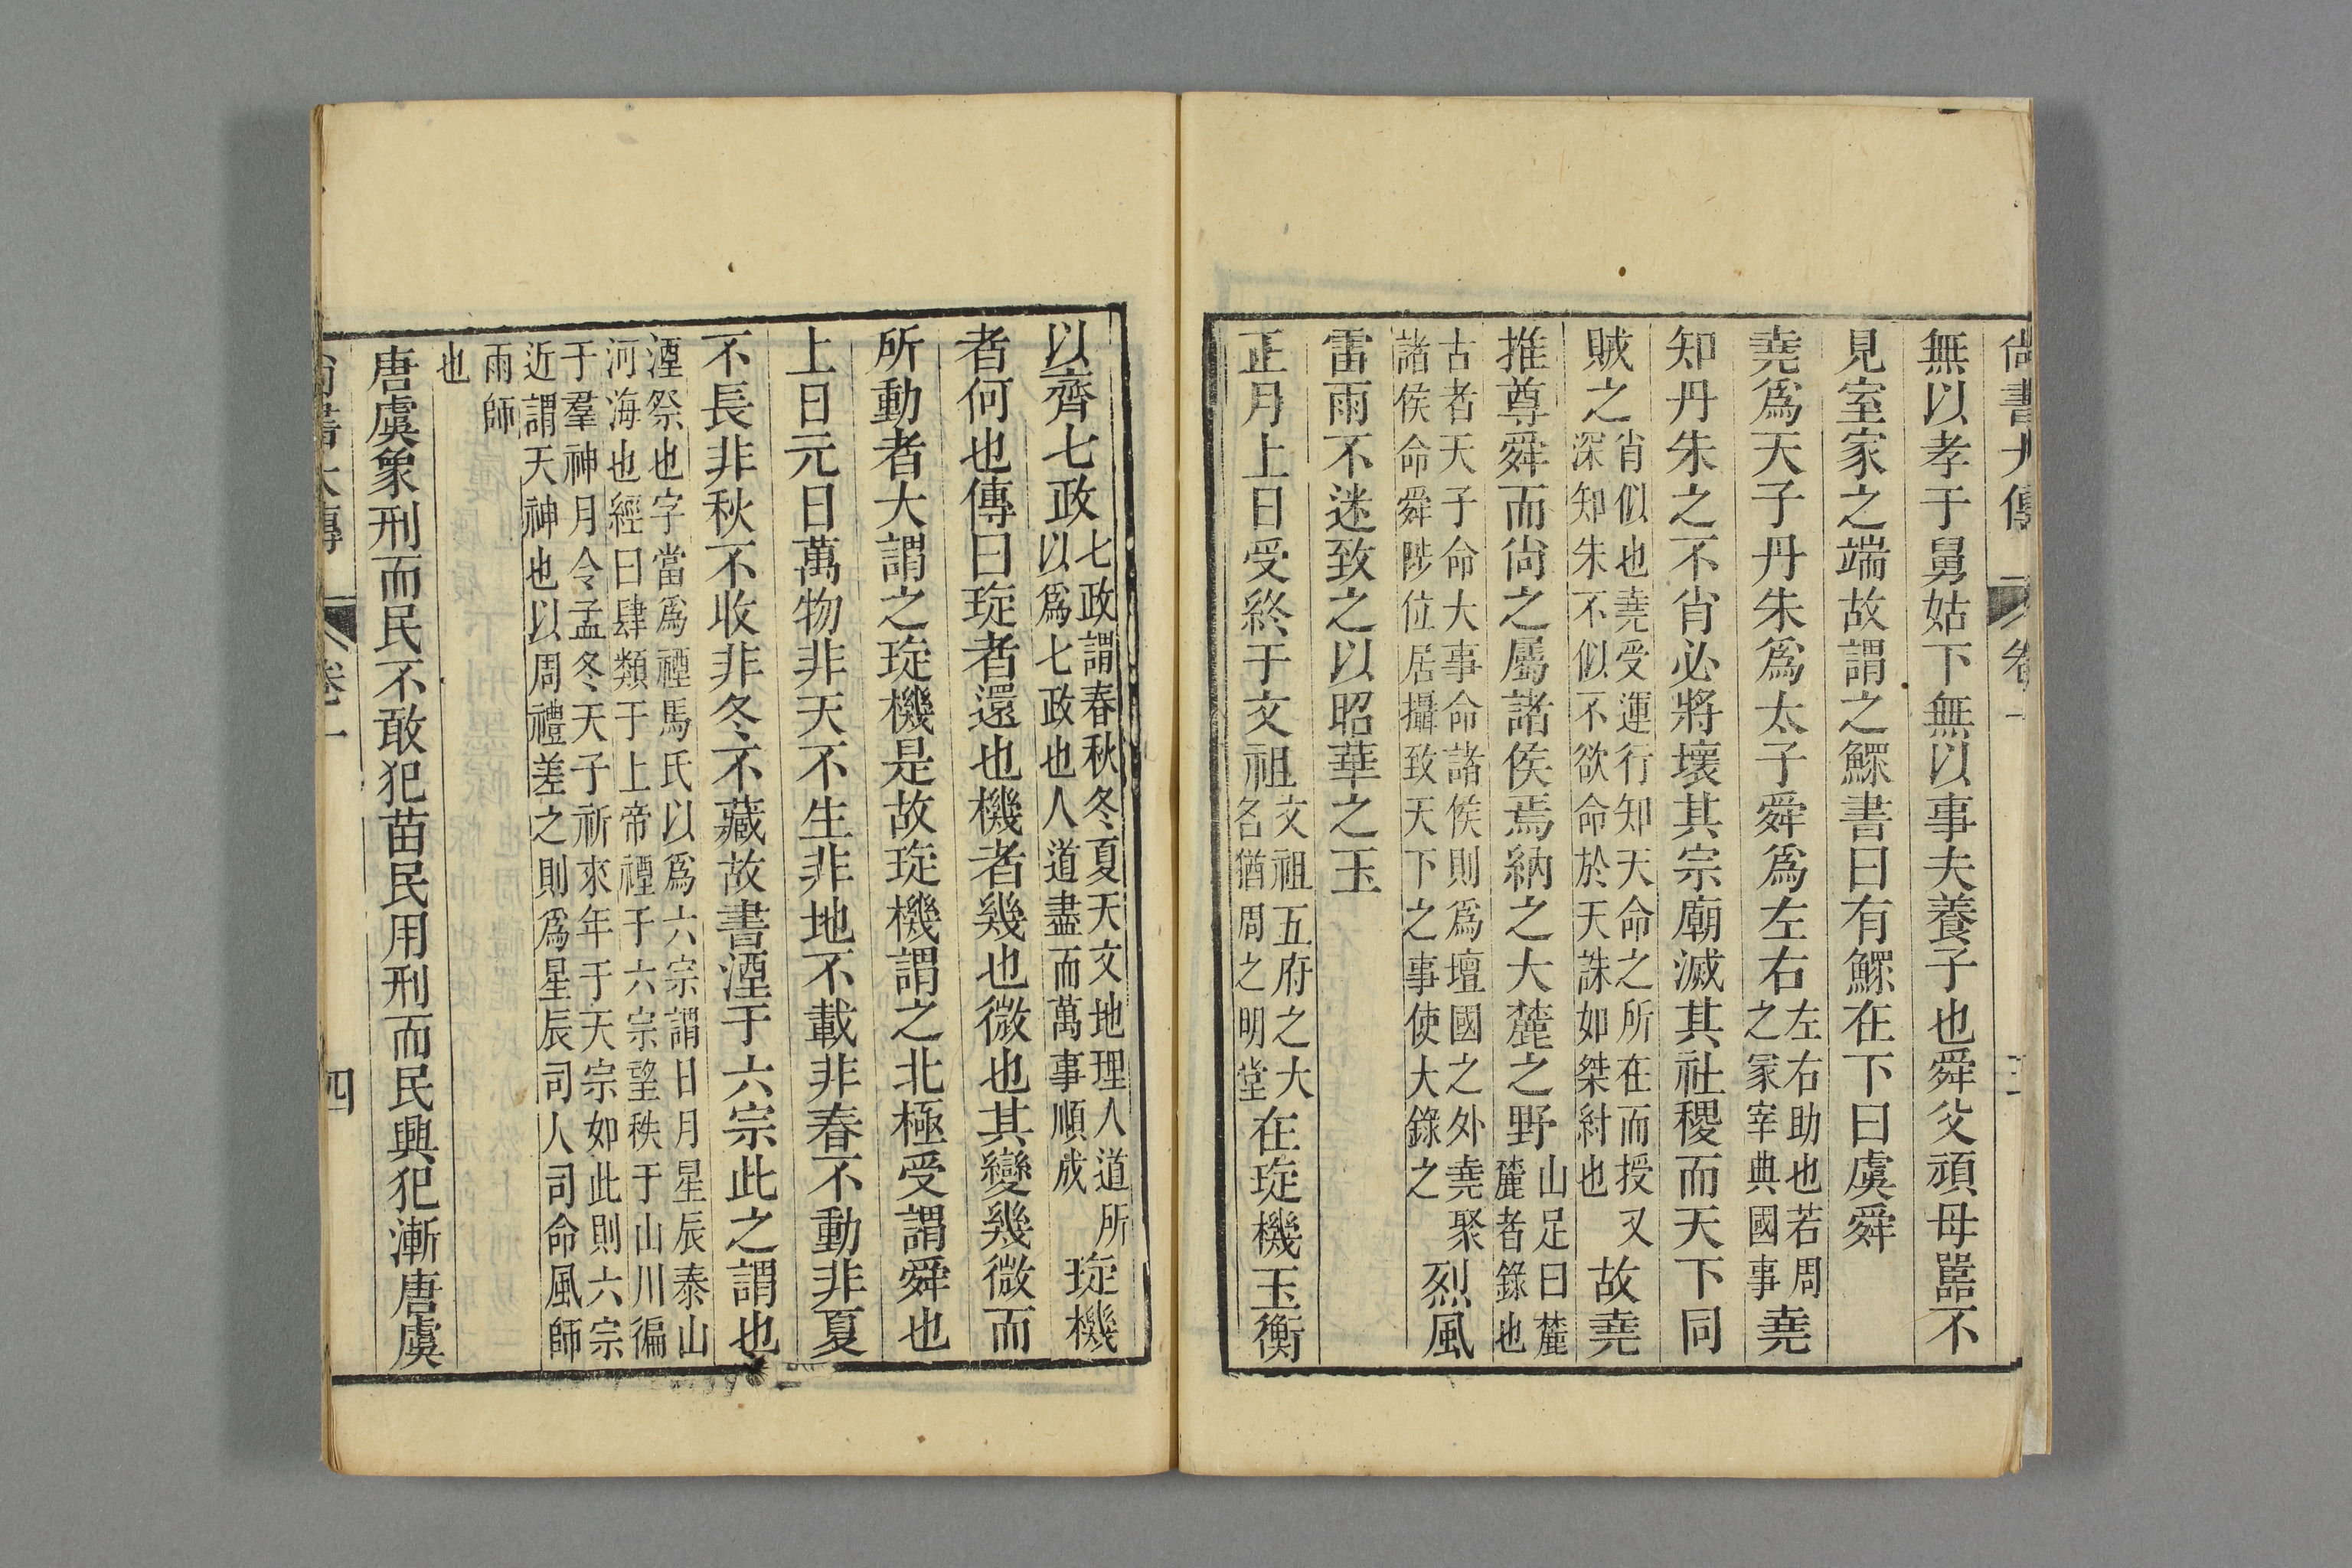 尚書大傳 卷一 三
無以孝于舅姑下無以事夫養子也舜父頑母嚚不
見室家之端故謂之鰥書曰有鰥在下曰虞舜
堯爲天子丹朱爲太子舜爲左右左右助也若周之冢宰典國事堯
知丹朱之不肖必將壞其宗廟滅其社稷而天下同
賊之肖似也堯受運行知天命之所在而授又深知朱不似不欲命於天誅如桀紂也故堯
推尊舜而尙之屬諸侯焉納之大麓之野山足曰麓麓者錄也
古者天子命大事命諸侯則爲壇國之外堯聚諸侯命舜陟位居攝致天下之事使大錄之烈風
雷雨不迷致之以昭華之玉
正月上日受終于文祖文祖五府之大名猶周之明堂在琁機玉衡
以齊七政七政謂春秋冬夏天文地理人道所以爲七政也人道盡而萬事順成琁機
者何也傳曰琁者還也機者幾也微也其變幾微而
所動者大謂之琁機是故琁機謂之北極受謂舜也
上日元日萬物非天不生非地不載非春不動非夏
不長非秋不收非冬不藏故書湮于六宗此之謂也
湮祭也字當爲禋馬氏以爲六宗謂日月星辰泰山河海也經曰肆類于上帝禋于六宗望秩于山川徧
于羣神月令孟冬天子祈來年于天宗如此則六宗近謂天神也以周禮差之則爲星辰司人司命風師
雨師也
唐虞象刑而民不敢犯苗民用刑而民興犯漸唐虞
尚書大傳 卷一 四